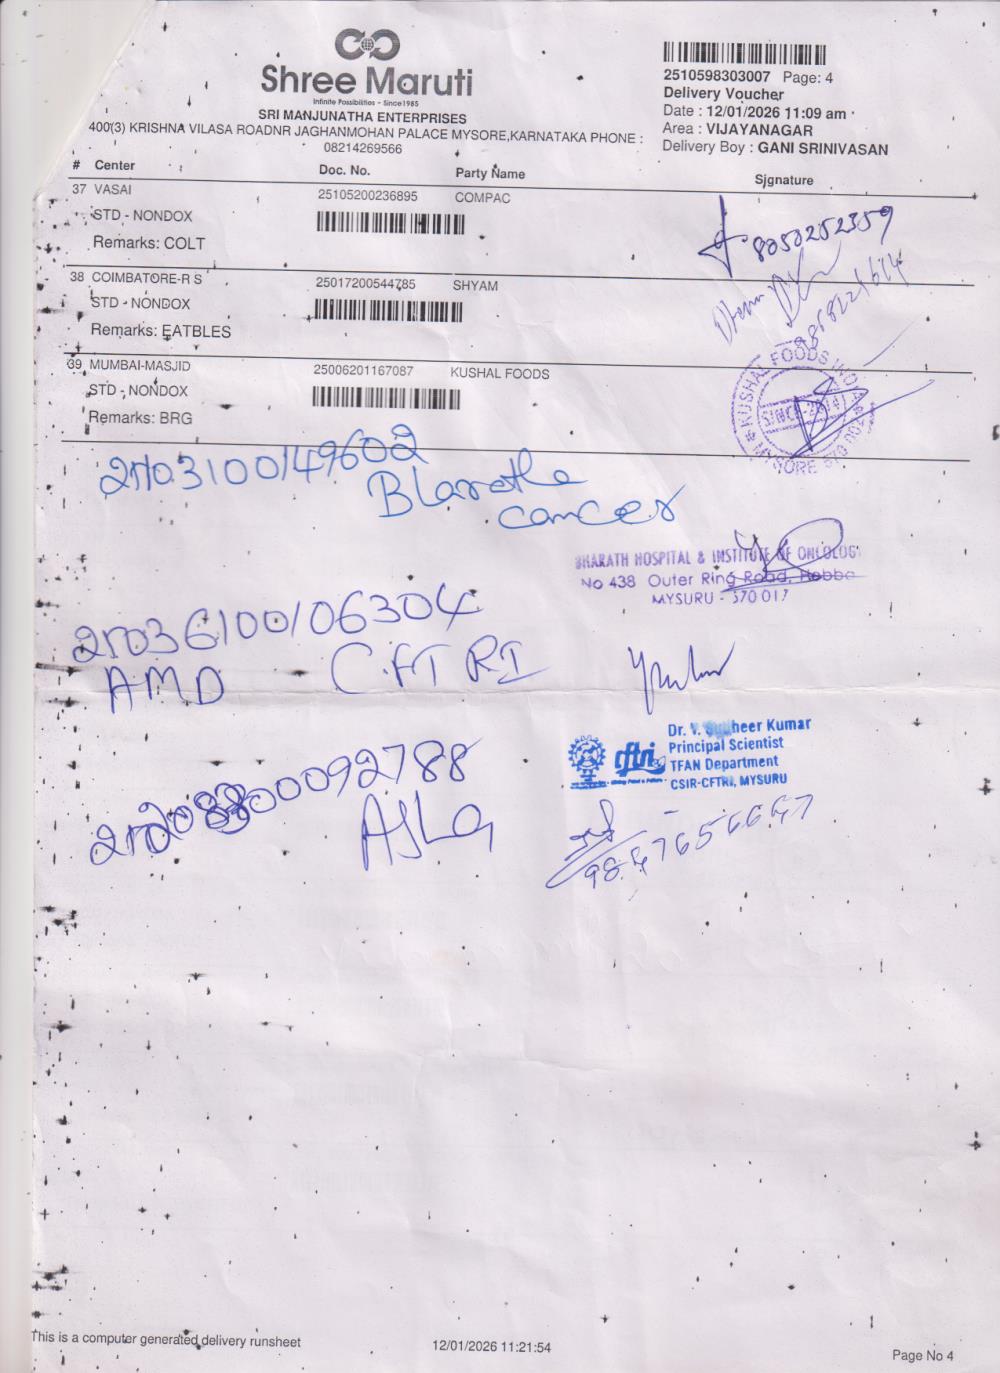 Shree Maruti
Infinite Possibilities - Since1985
SRI MANJUNATHA ENTERPRISES
400(3) KRISHNA VILASA ROADNR JAGHANMOHAN PALACE MYSORE,KARNATAKA PHONE :
08214269566
2510598303007 Page: 4
Delivery Voucher
Date : 12/01/2026 11:09 am
Area : VIJAYANAGAR
Delivery Boy : GANI SRINIVASAN
# Center Doc. No. Party Name Signature
37 VASAI 25105200236895 COMPAC
STD - NONDOX
Remarks: COLT
8050252359
38 COIMBATORE-R S 25017200544785 SHYAM
STD - NONDOX
Remarks: EATBLES
39 MUMBAI-MASJID 25006201167087 KUSHAL FOODS
STD - NONDOX
Remarks: BRG
KUSHAL FOODS
MYSORE 570
Cancer
BHARATH HOSPITAL & INSTITUTE OF ONCOLOGY
No 438 Outer Ring Road, Hebba
MYSURU - 570 017
AMD CFTRI
cftri
Dr. V. Sudheer Kumar
Principal Scientist
TFAN Department
CSIR-CFTRI, MYSURU
This is a computer generated delivery runsheet 12/01/2026 11:21:54 Page No 4